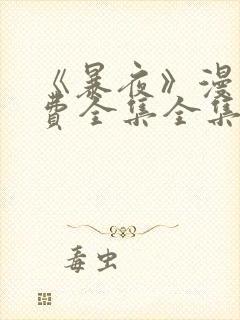 《暴夜》漫
费全集全集
毒虫